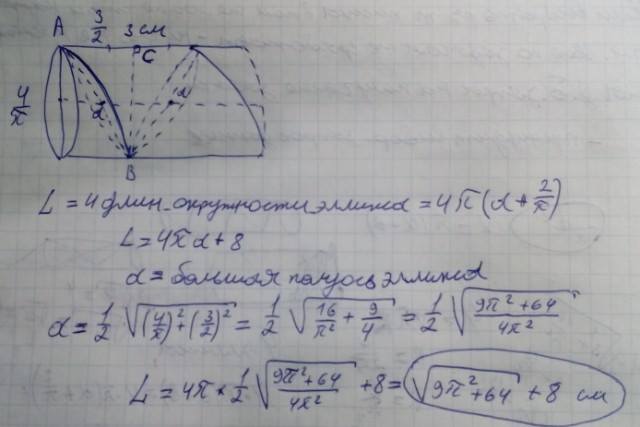 A 3/2 3 см
C
4/π
α α
B
L = 4 длин. окружности эллипса = 4π(α + 2/π)
L = 4πα + 8
α = большая полуось эллипса
α = 1/2 √((4/π)² + (3/2)²) = 1/2 √(16/π² + 9/4) = 1/2 √((9π² + 64)/4π²)
L = 4π × 1/2 √((9π² + 64)/4π²) + 8 = √(9π² + 64) + 8 см